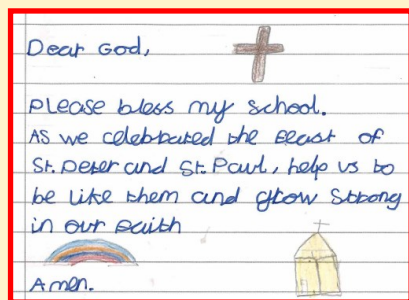 Dear God,
Please bless my school.
As we celebrated the feast of
St. Peter and St. Paul, help us to
be like them and grow strong
in our faith
Amen.